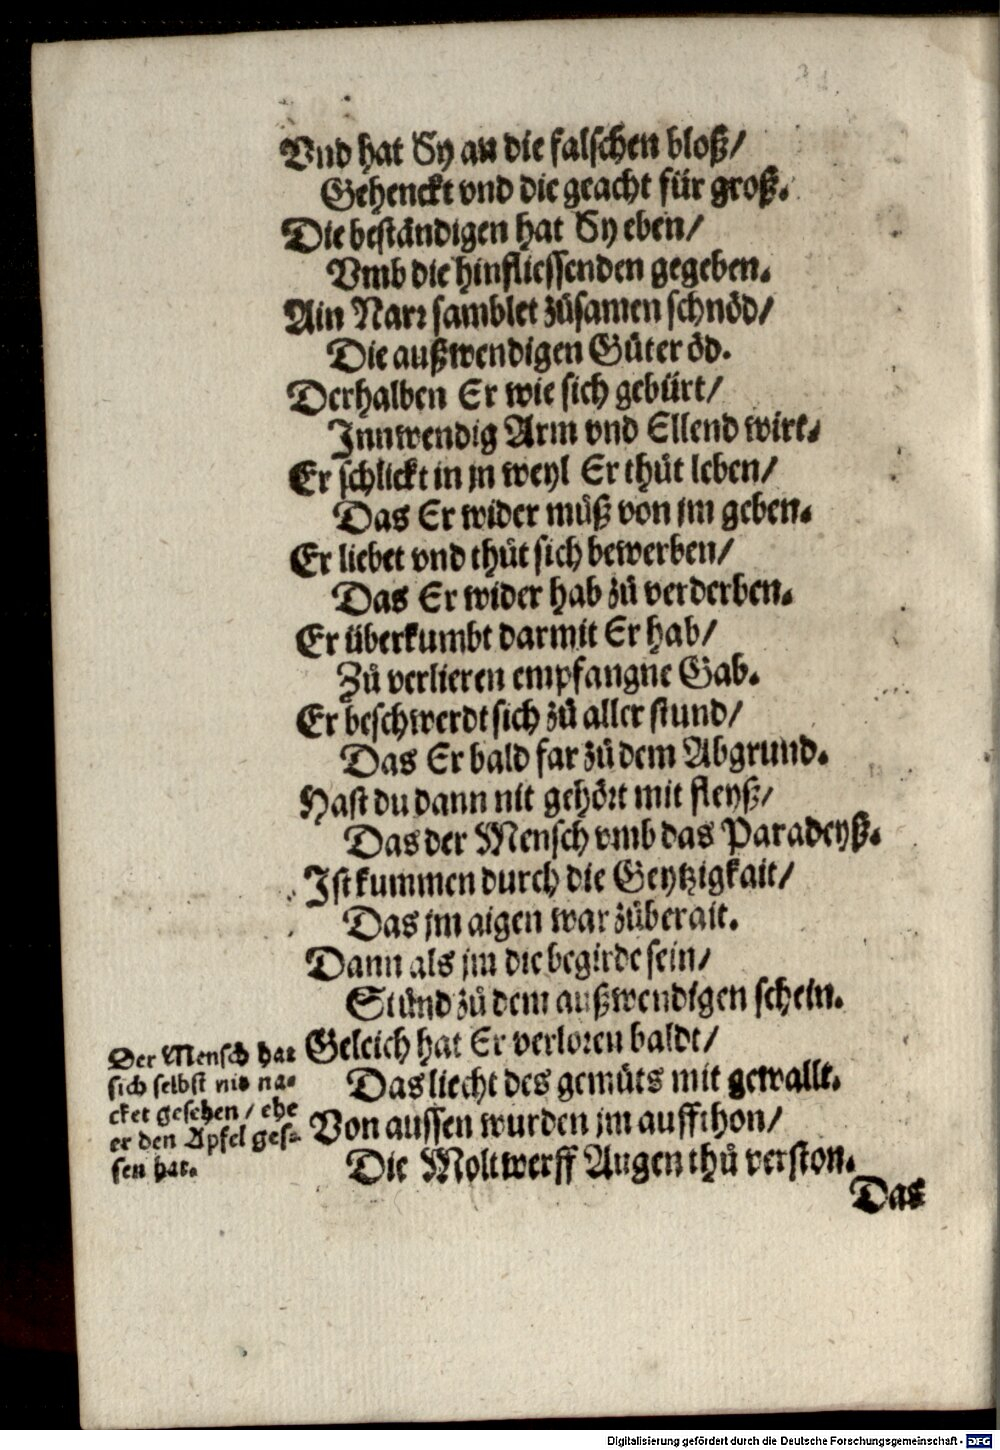 Vnd hat Sy an die falschen bloß/
Gehenckt vnd die geacht für groß.
Die beständigen hat Sy eben/
Vmb die hinfliessenden gegeben.
Ain Narr samblet zůsamen schnöd/
Die außwendigen Güter öd.
Derhalben Er wie sich gebürt/
Innwendig Arm vnd Ellend wirt.
Er schlickt in jn weyl Er thůt leben/
Das Er wider můß von jm geben.
Er liebet vnd thůt sich bewerben/
Das Er wider hab zů verderben.
Er überkumbt darmit Er hab/
Zů verlieren empfangne Gab.
Er beschwerdt sich zů aller stund/
Das Er bald far zů dem Abgrund.
Hast du dann nit gehört mit fleyß/
Das der Mensch vmb das Paradeyß.
Ist kummen durch die Geytzigkait/
Das jm aigen war zůberait.
Dann als jm die begirde sein/
Stůnd zů dem außwendigen schein.
Der Mensch hat
sich selbst nie na-
cket gesehen/ ehe
er den Apfel ges-
sen hat.
Geleich hat Er verloren baldt/
Das liecht des gemüts mit gewallt.
Von aussen wurden jm auffthon/
Die Moltwerff Augen thů verston.
Das
Digitalisierung gefördert durch die Deutsche Forschungsgemeinschaft - DFG